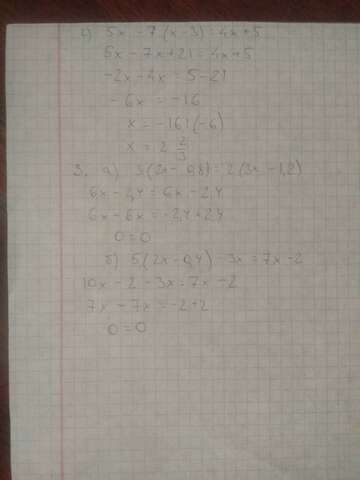 г) 5x - 7(x-3) = 4x+5
5x - 7x+21 = 4x+5
-2x-4x = 5-21
-6x = -16
x = -16:(-6)
x = 2 2/3
3. а) 3(2x-0,8) = 2(3x-1,2)
6x - 2,4 = 6x - 2,4
6x - 6x = -2,4+2,4
0 = 0
б) 5(2x-0,4) - 3x = 7x-2
10x - 2 - 3x = 7x - 2
7x - 7x = -2+2
0 = 0